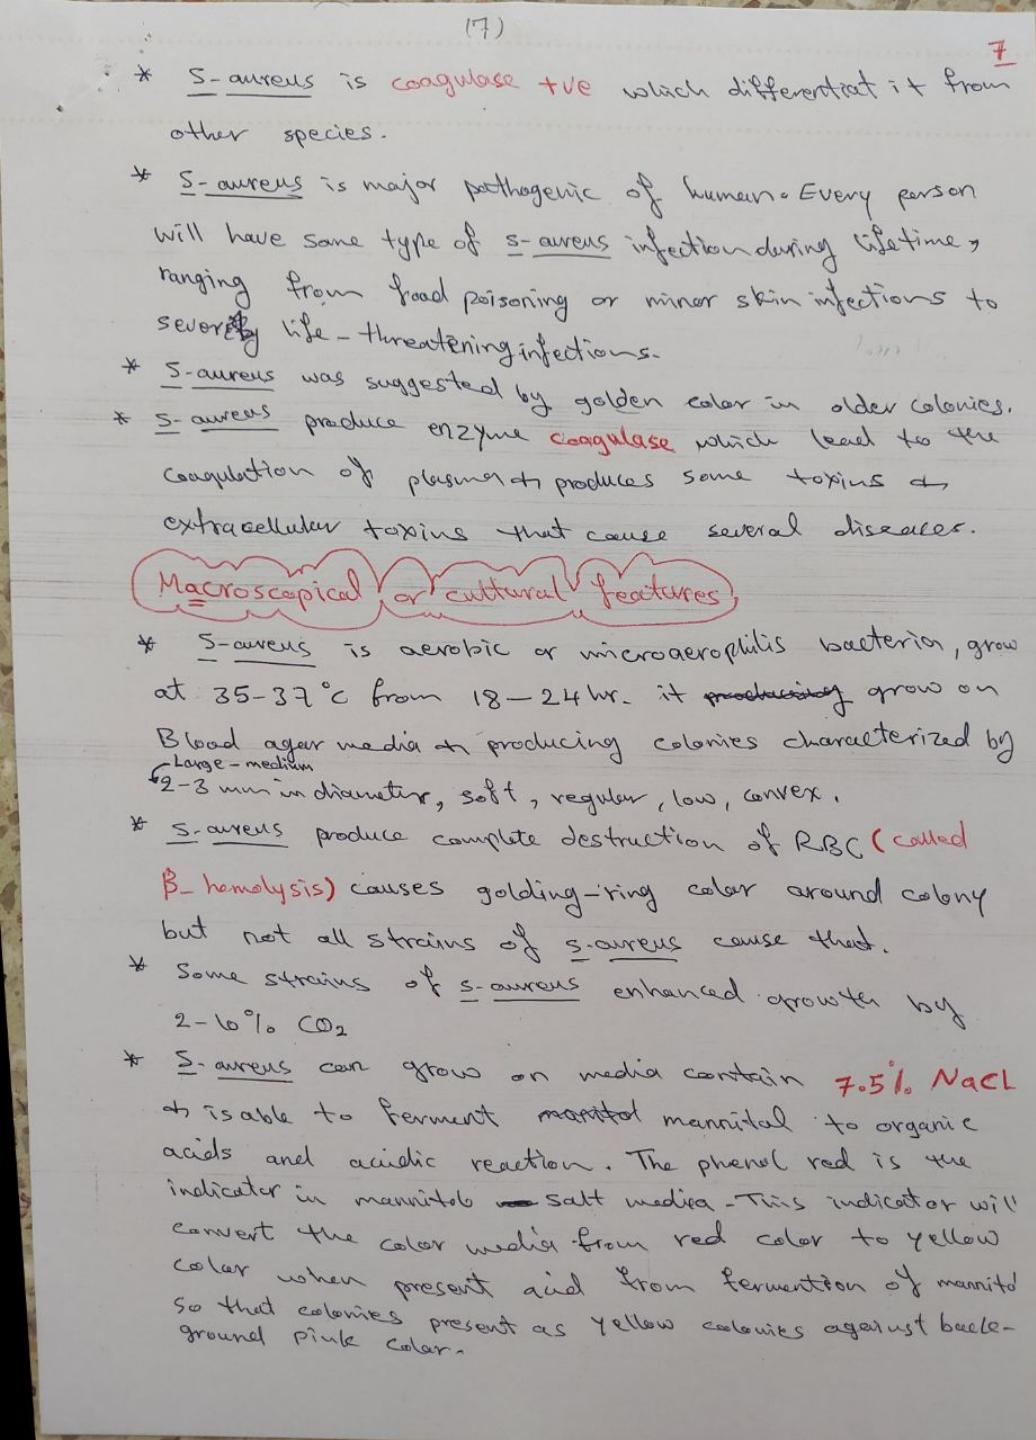 (7)
7
* S-aureus is coagulase +ve which differentiat it from
other species.
* S-aureus is major pathogenic of human. Every person
will have some type of s-aureus infection during lifetime,
ranging from food poisoning or minor skin infections to
severity life-threatening infections.
* S-aureus was suggested by golden color in older colonies.
* S-aureus produce enzyme coagulase which lead to the
coagulation of plasma & produces some toxins &
extracellular toxins that cause several diseases.
Macroscopical or cultural features
* S-aureus is aerobic or microaerophilis bacteria, grow
at 35-37°C from 18-24 hr. it producing grow on
Blood agar media & producing colonies characterized by
Large-medium
2-3 mm in diameter, soft, regular, low, convex.
* S-aureus produce complete destruction of RBC (called
β-hemolysis) causes golding-ring color around colony
but not all strains of s-aureus cause that.
* Some strains of s-aureus enhanced growth by
2-10% CO2
* S-aureus can grow on media contain 7.5% NaCL
& is able to ferment manitol mannital to organic
acids and acidic reaction. The phenol red is the
indicator in mannitol salt media - This indicator will
convert the color media from red color to yellow
color when present acid from fermention of mannitol
so that colonies present as yellow colonies against back-
ground pink color.